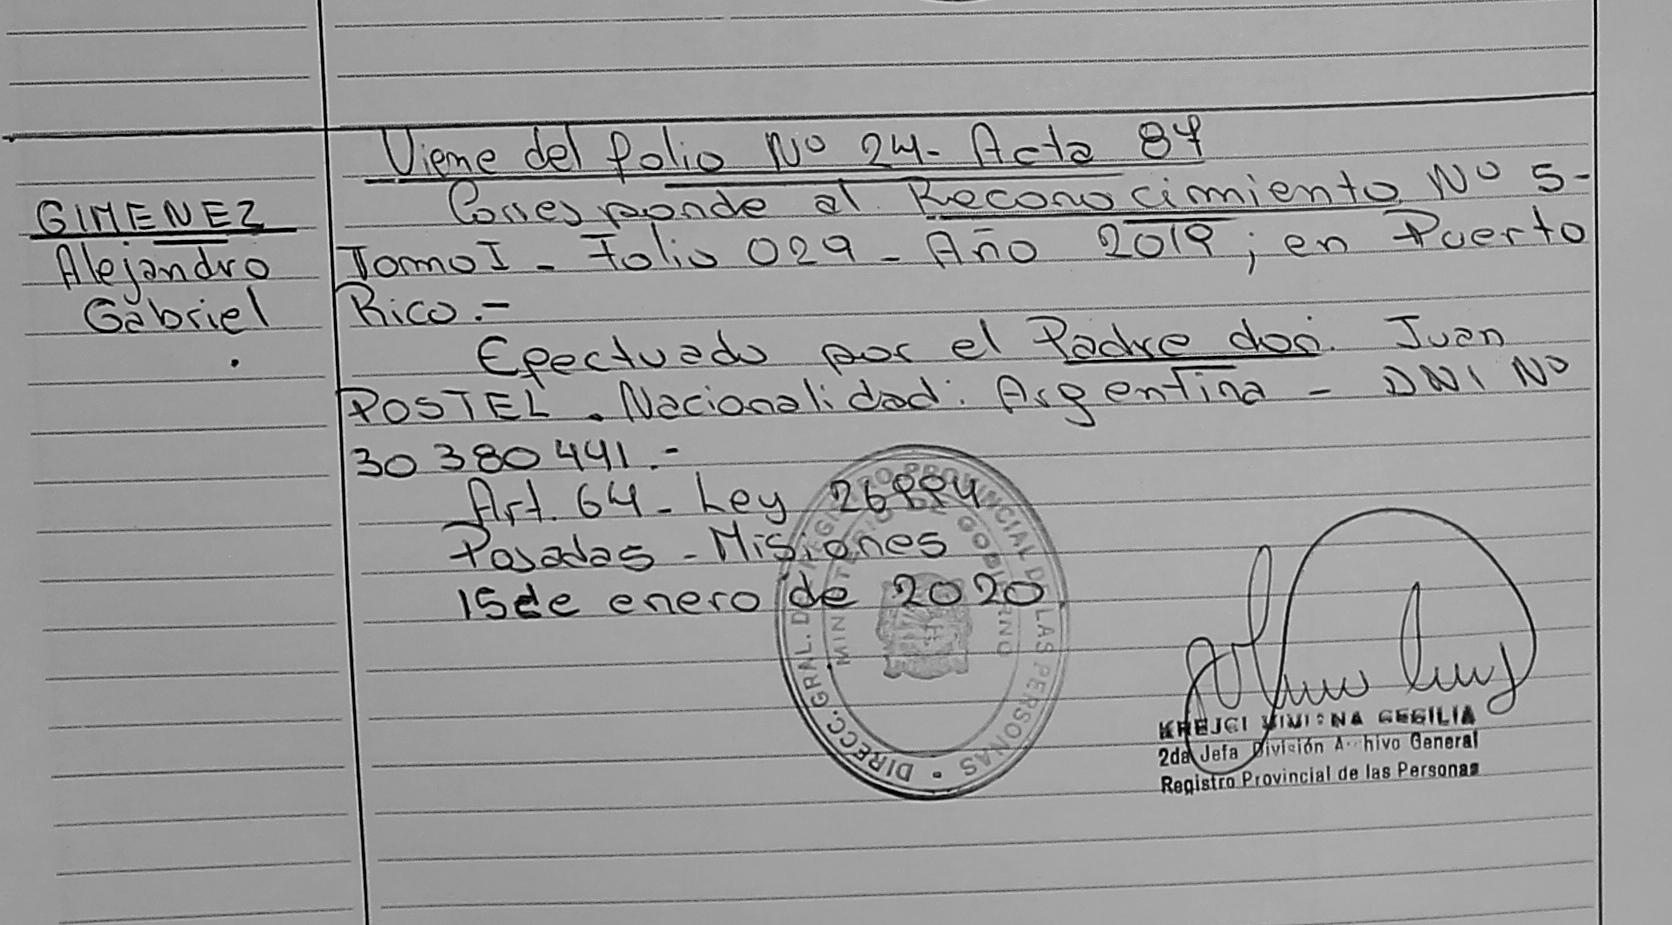 Viene del folio Nº 24- Acta 84
GIMENEZ
Alejandro
Gabriel
Corresponde al Reconocimiento Nº 5-
Tomo I - Folio 029 - Año 2019; en Puerto
Rico.-
Efectuado por el Padre don. Juan
POSTEL. Nacionalidad: Argentina - DNI Nº
30380441.-
Art. 64 - Ley 26994
Posadas - Misiones
15 de enero de 2020
DIRECC. GRAL. DEL REGISTRO PROVINCIAL DE LAS PERSONAS
MINISTERIO DE GOBIERNO
KREJCI VIVIANA CECILIA
2da Jefa División Archivo General
Registro Provincial de las Personas